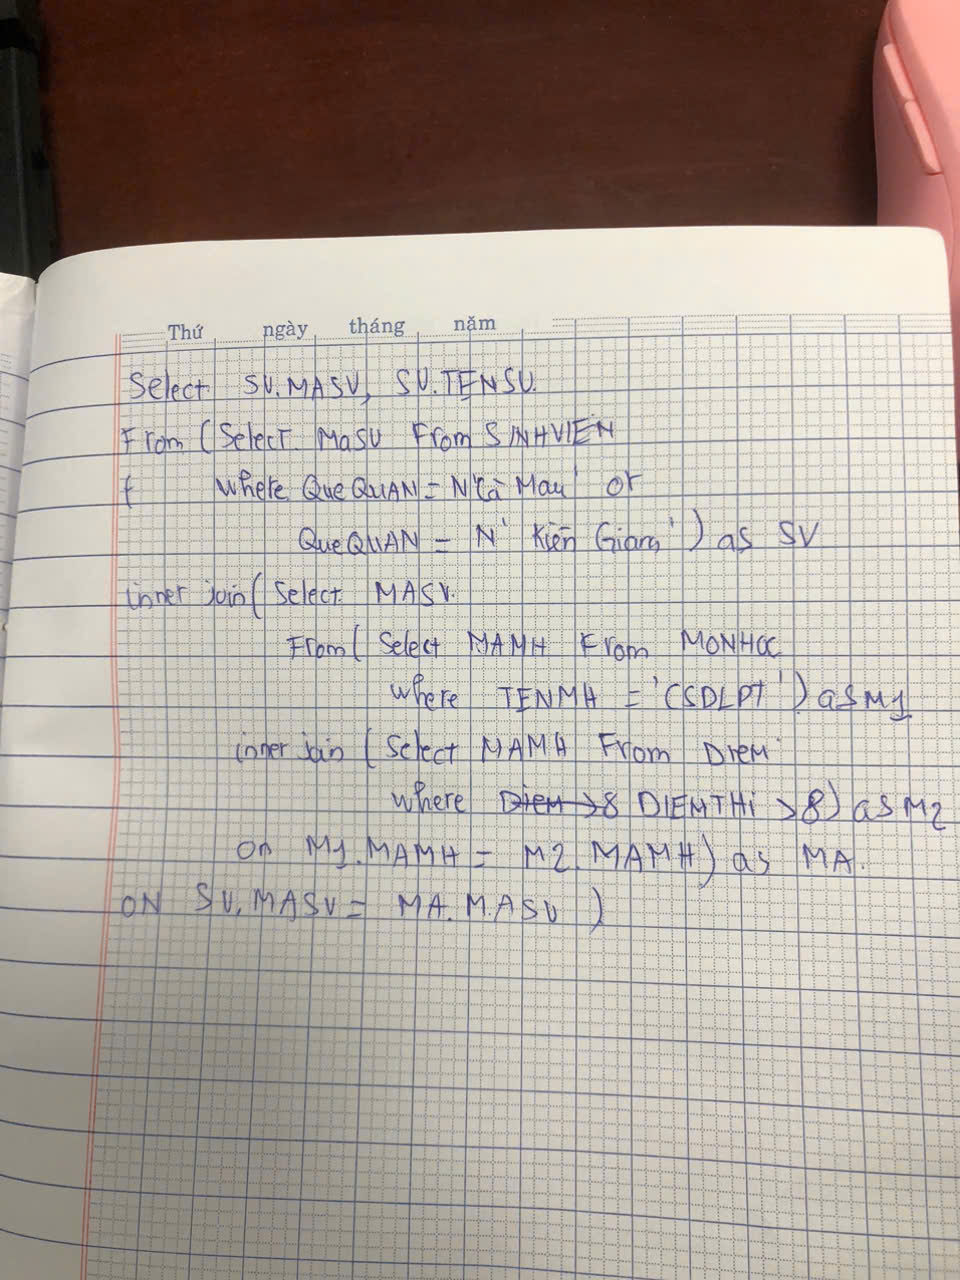 Thứ ngày tháng năm
Select SV.MASV, SV.TENSV.
From (Select MaSV From SINHVIEN
( where QueQUAN = N'Cà Mau' or
QueQUAN = N' Kiên Giang') as SV
inner join( Select MASV.
From( Select MAMH From MONHOC
where TENMH = 'CSDLPT') as M1
inner join (Select MAMH From DIEM
where DIEM > 8 DIEMTHi > 8) as M2
on M1.MAMH = M2.MAMH) as MA.
ON SV.MASV = MA.MASV )